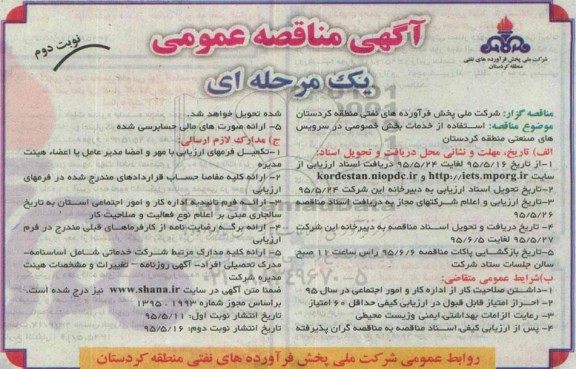 آگهی مناقصه عمومی
یک مرحله ای
نوبت دوم
شرکت ملی پخش فرآورده های نفتی
منطقه کردستان
مناقصه گزار: شرکت ملی پخش فرآورده های نفتی منطقه کردستان
موضوع مناقصه: استفاده از خدمات بخش خصوصی در سرویس
های صنعتی منطقه کردستان
الف) تاریخ، مهلت و نشانی محل دریافت و تحویل اسناد:
۱-از تاریخ ۹۵/۵/۱۶ لغایت ۹۵/۵/۲۳ دریافت اسناد ارزیابی از
سایت http://iets.mporg.ir و kordestan.niopdc.ir
۲-تاریخ تحویل اسناد ارزیابی به دبیرخانه این شرکت ۹۵/۵/۲۴
۳-تاریخ ارزیابی و اعلام شرکتهای مجاز به دریافت اسناد مناقصه
۹۵/۵/۲۶
۴- تاریخ دریافت و تحویل اسناد مناقصه به دبیرخانه این شرکت
۲۷ لغایت ۹۵/۶/۵
۵-تاریخ بازگشایی پاکات مناقصه ۹۵/۶/۶ راس ساعت ۱۱ صبح
سالن جلسات ستاد شرکت
ب)شرایط عمومی متقاضی:
۱-داشتن صلاحیت کار از اداره کار و امور اجتماعی در سال ۹۵
۲- احراز امتیاز قابل قبول در ارزیابی کیفی حداقل ۶۰ امتیاز
۳- رعایت الزامات بهداشتی، ایمنی وزیست محیطی
۴- پس از ارزیابی کیفی، اسناد مناقصه به مناقصه گران پذیرفته
شده تحویل خواهد شد.
۵- ارائه صورت های مالی حسابرسی شده
ج) مدارک لازم ارسالی:
۱-تکمیل فرمهای ارزیابی با مهر و امضا مدیر عامل یا اعضاء هیئت
مدیره
۲- ارائه کلیه مفاصا حساب قراردادهای مندرج شده در فرمهای
ارزیابی
۳- ارائه فرم تائیدیه اداره کار و امور اجتماعی استان به تاریخ
سالجاری مبنی بر اعلام نوع فعالیت و صلاحیت کار
۴- ارائه برگه رضایت نامه از کارفرماهای قبلی مندرج در فرم
ارزیابی
۵- ارائه کلیه مدارک مرتبط شرکت خدماتی شامل اساسنامه-
مدرک تحصیلی افراد- آگهی روزنامه - تغییرات و مشخصات هیئت
مدیره شرکت
ضمنا متن آگهی در سایت www.shana.ir نیز درج شده است.
براساس مجوز شماره ۱۹۹۳ . ۱۳۹۵
تاریخ انتشار نوبت اول: ۹۵/۵/۱۱
تاریخ انتشار نوبت دوم: ۹۵/۵/۱۶
روابط عمومی شرکت ملی پخش فرآورده های نفتی منطقه کردستان